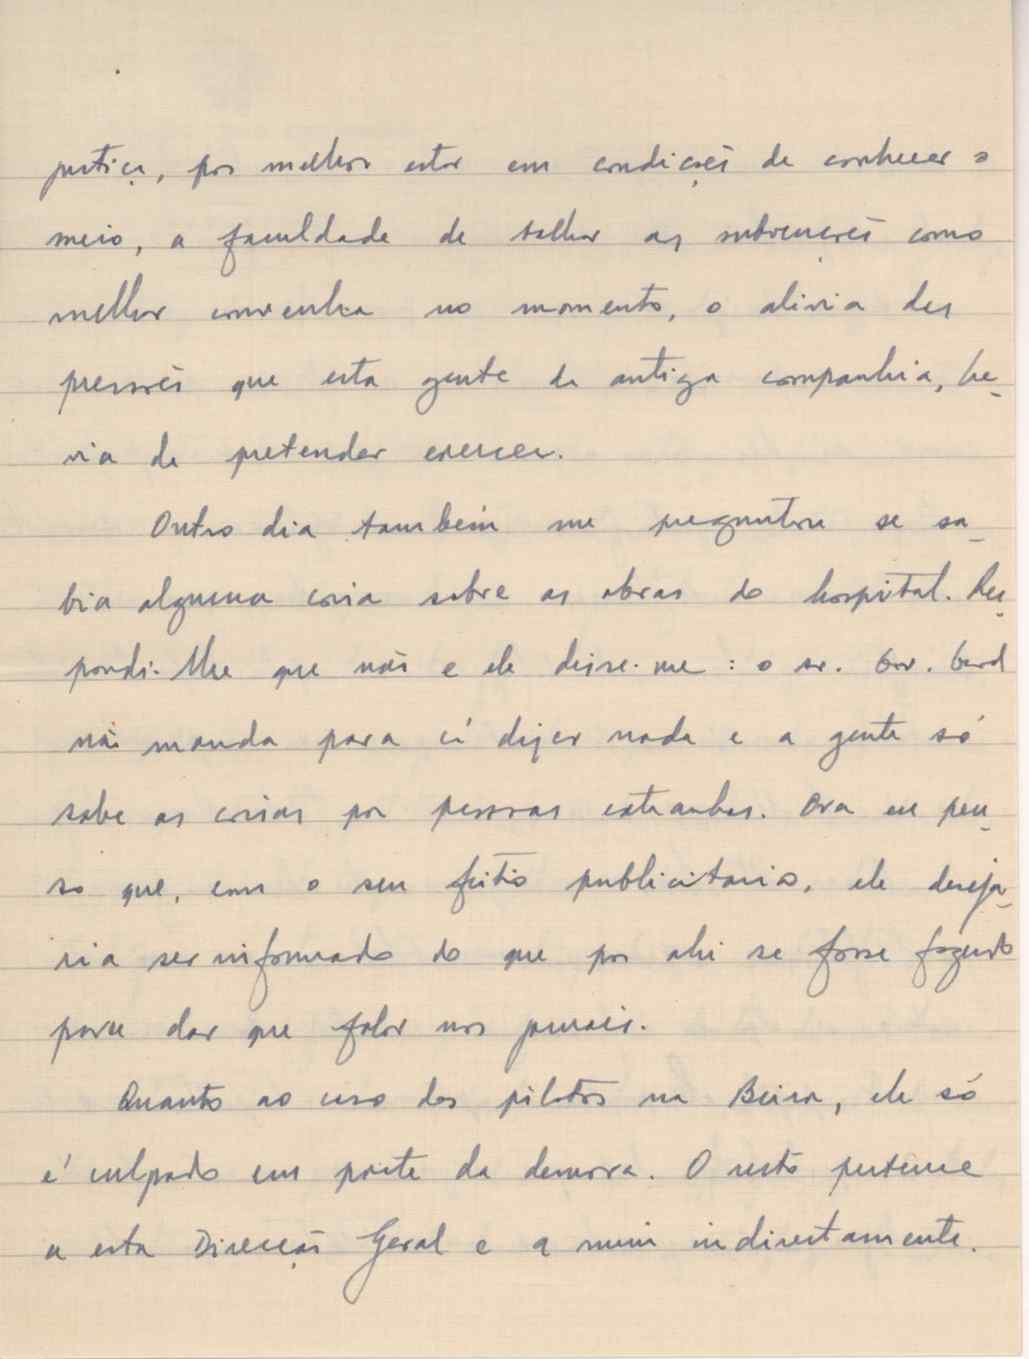 justiça, por melhor estar em condições de conhecer o
meio, a faculdade de talhar as subvenções como
melhor convenha no momento, o alivia das
pressões que esta gente da antiga companhia, ha-
via de pretender exercer.
Outro dia também me preguntou se sa-
bia alguma coisa sobre as obras do hospital. Res-
pondi-lhe que não e ele disse-me: o sr. Gov. Geral
não manda para cá dizer nada e a gente só
sabe as coisas por pessoas extranhas. Ora eu pen-
so que, com o seu feitio publicitario, ele deseja-
ria ser informado do que por ahi se fosse fazendo
para dar que falar nos jornais.
Quanto ao caso dos pilotos na Beira, ele só
é culpado em parte da demora. O resto pertence
a esta Direcção Geral e a mim indirectamente.